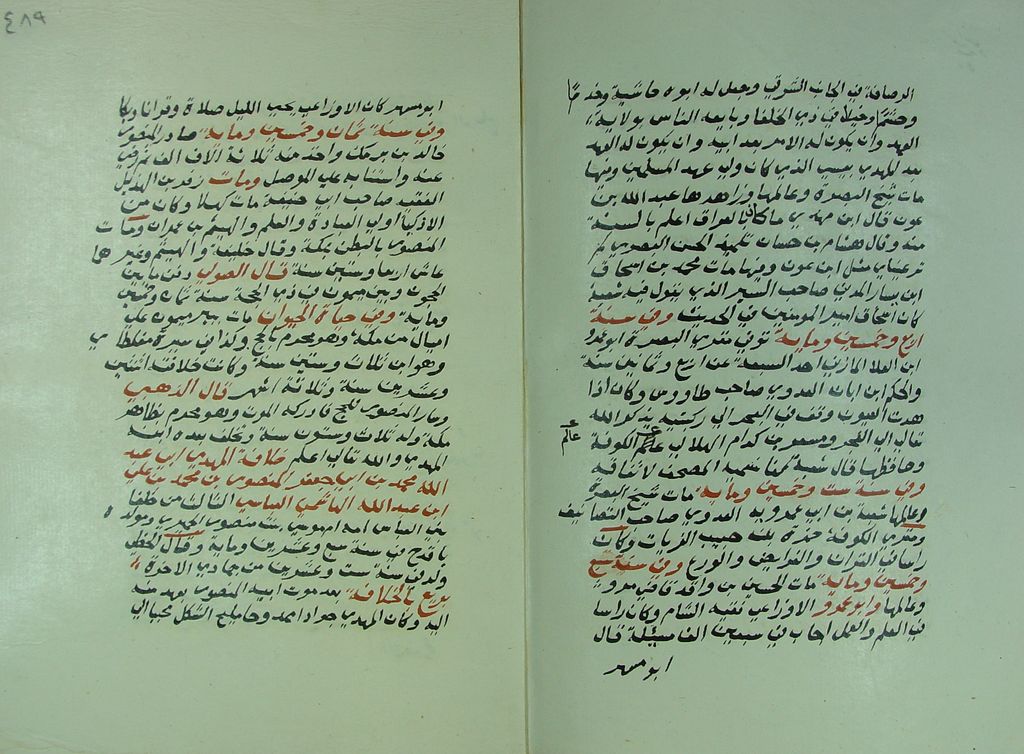 الرصافة في الجانب الشرقي وجعل له ابوه حاشية وخدما
وحشما وخيلا في زي الخلفا وبايعه الناس بولاية
العهد وان يكون له الامر بعد ابيه وان يكون له العهد
بعد المهدي بسبب الذي كان ولي عهد المسلمين وفيها
مات شيخ البصرة وعالمها وزاهدها عبد الله بن
عون قال ابن مهدي ما كان بالعراق اعلم بالسنة
منه وقال هشام بن حسان تلميذ الحسن البصري لم
تر عيناي مثل ابن عون وفيها مات محمد بن اسحاق
ابن يسار المدني صاحب السير الذي يقول فيه شعبة
كان اسحاق امير المومنين في الحديث وفي سنة
اربع وخمسين وماية توفي مقري البصرة ابو عمرو
ابن العلا المازني احد السبعة عن اربع وثمانين سنة
والحكم ابن ابان العدوي صاحب طاووس وكان اذا
هدت العيون وقف في البحر الي ركبتيه يذكر الله
تعالي الي الفجر ومسعر بن كدام الهلالي عالم الكوفة
عالم
وحافظها قال شعبة كنا نسميه المصحف لاتقانه
وفي سنة ست وخمسين وماية مات شيخ البصرة
وعالمها شعبة بن ابي عمروبه العدوي صاحب التصانيف
ومقري الكوفة حمزة بن حبيب الزيات وكان
راسا في القران والفرايض والورع وفي سنة سبع
وخمسين وماية مات الحسين بن واقد قاضي مرو
وعالمها وابو عمرو الاوزاعي فقيه الشام وكان راسا
في العلم والعمل اجاب في سبعين الف مسئلة قال
ابو مسهر
٤٨٩
ابو مسهر كان الاوزاعي يحيي الليل صلاة وقرانا وبكا
وفي سنة ثمان وخمسين وماية صادر المنصور
خالد بن برمك واخذ منه ثلاثة الاف الف ثم رضي
عنه واستنابه علي الموصل ومات زفر بن الهذيل
الفقيه صاحب ابي حنيفة مات كهلا وكان من
الاذكيا اولي العبادة والعلم والهيثم بن عمران ومات
المنصور بالبطن بمكة وقال خليفة والهيثم وغيرها
عاش اربعا وستين سنة قال الصولي دفن ما بين
الحجون وبين ميمون في ذي الحجة سنة ثمان وخمسين
وماية وفي حياة الحيوان مات ببير ميمون علي
اميال من مكة وهو محرم بالحج وكذا في سيرة مغلطاي
وهو ابن ثلاث وستين سنة وكانت خلافته اثنتين
وعشرين سنة وثلاثة اشهر قال الذهبي
وسار المنصور للحج فادركه الموت وهو محرم بظاهر
مكة وله ثلاث وستون سنة وتخلف بعده ابنه
المهدي والله تعالي اعلم خلافة المهدي ابي عبد
الله محمد بن ابي جعفر المنصور بن محمد بن علي
ابن عبد الله الهاشمي العباسي الثالث من خلفا
بني العباس امه ام موسي بنت منصور الحميري ومولده
باقدح في سنة سبع وعشرين وماية وقال الخطي
ولد في سنة ست وعشرين من جمادي الاخرة
بويع بالخلافة بعد موت ابيه المنصور بعهد منه
اليه وكان المهدي جوادا ممدوحا مليح الشكل محببا الي